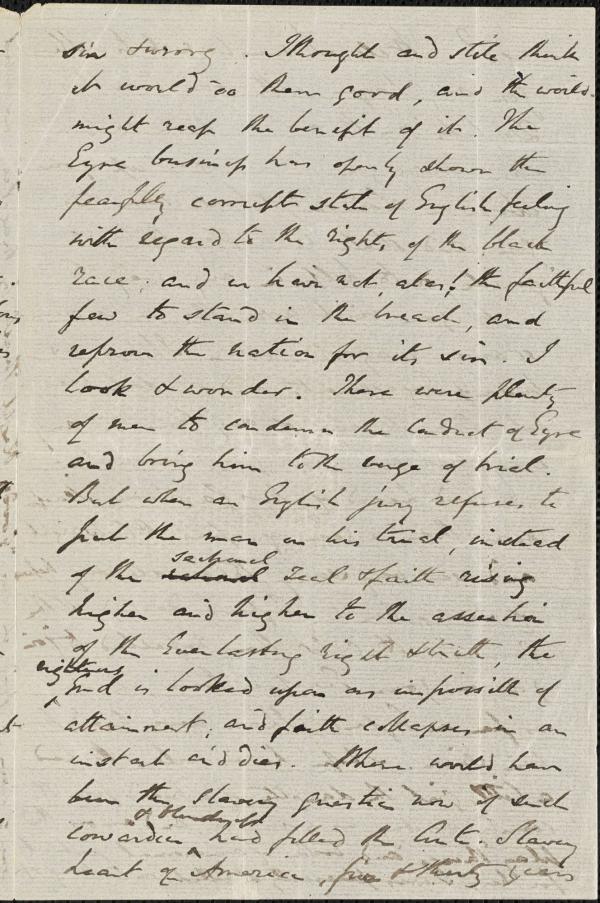 sin & wrong. I thought and still think
it would do them good, and the world
might reap the benefit of it. The
Eyre business has openly shown the
fearfully corrupt state of English feeling
with regard to the rights of the black
race; and we have not alas! the faithful
few to stand in the breach, and
reprove the nation for its sin. I
look & wonder. There were plenty
of men to condemn the conduct of Eyre
and bring him to the verge of trial.
But when an English jury refuses to
put the man on his trial, instead
of the zeal & faith rising
higher and higher to the assertion
of the Everlasting right & truth, the
righteous
End is looked upon as impossible of
attainment; and faith collapses in an
instant and dies. Where would have
been the Slavery question now if such
cowardice & blindness had filled the Anti-Slavery
heart of America, five & thirty years